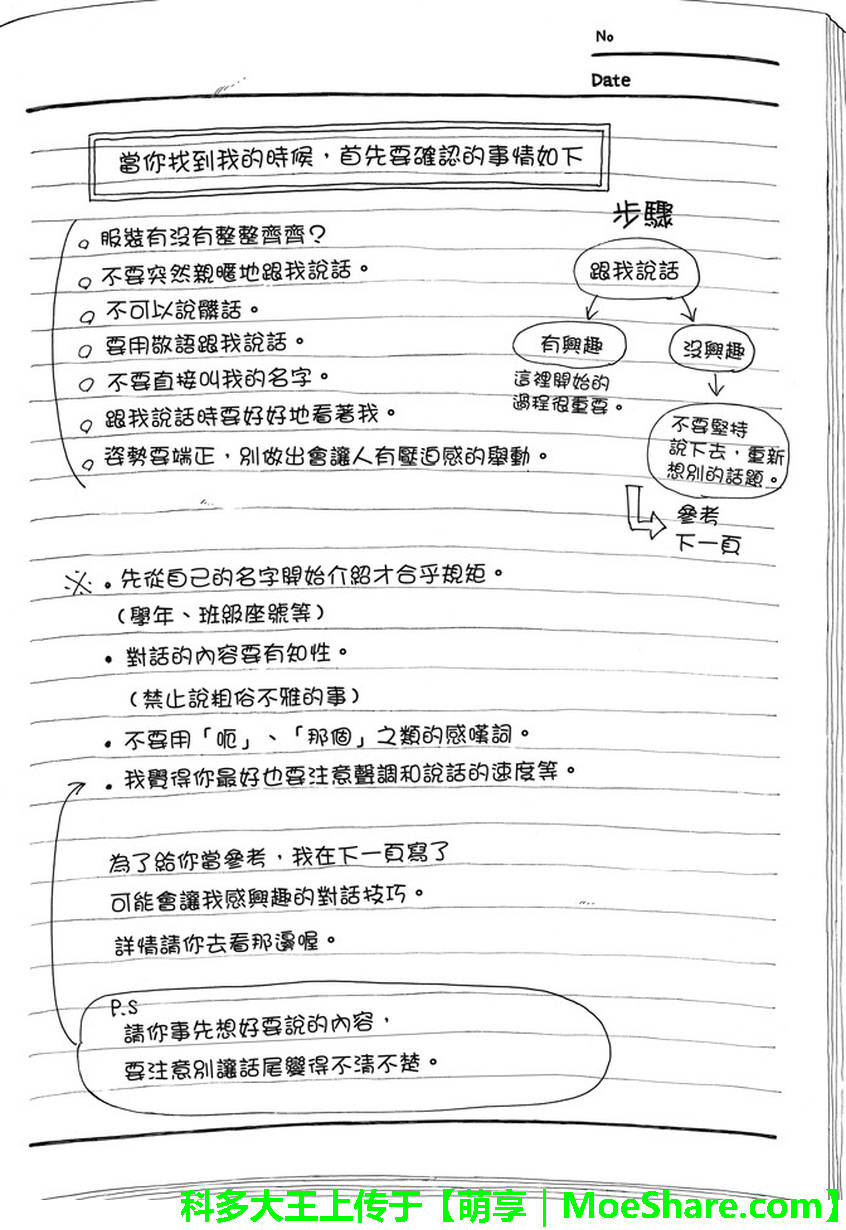 No
Date
當你找到我的時候，首先要確認的事情如下
服裝有沒有整整齊齊？
不要突然親暱地跟我說話。
不可以說髒話。
要用敬語跟我說話。
不要直接叫我的名字。
跟我說話時要好好地看著我。
姿勢要端正，別做出會讓人有壓迫感的舉動。
步驟
跟我說話
有興趣
沒興趣
這裡開始的
過程很重要。
不要堅持
說下去，重新
想別的話題。
參考
下一頁
※ • 先從自己的名字開始介紹才合乎規矩。
（學年、班級座號等）
• 對話的內容要有知性。
（禁止說粗俗不雅的事）
• 不要用「呃」、「那個」之類的感嘆詞。
• 我覺得你最好也要注意聲調和說話的速度等。
為了給你當參考，我在下一頁寫了
可能會讓我感興趣的對話技巧。
詳情請你去看那邊喔。
P.S
請你事先想好要說的內容，
要注意別讓話尾變得不清不楚。
科多大王上传于【萌享｜MoeShare.com】